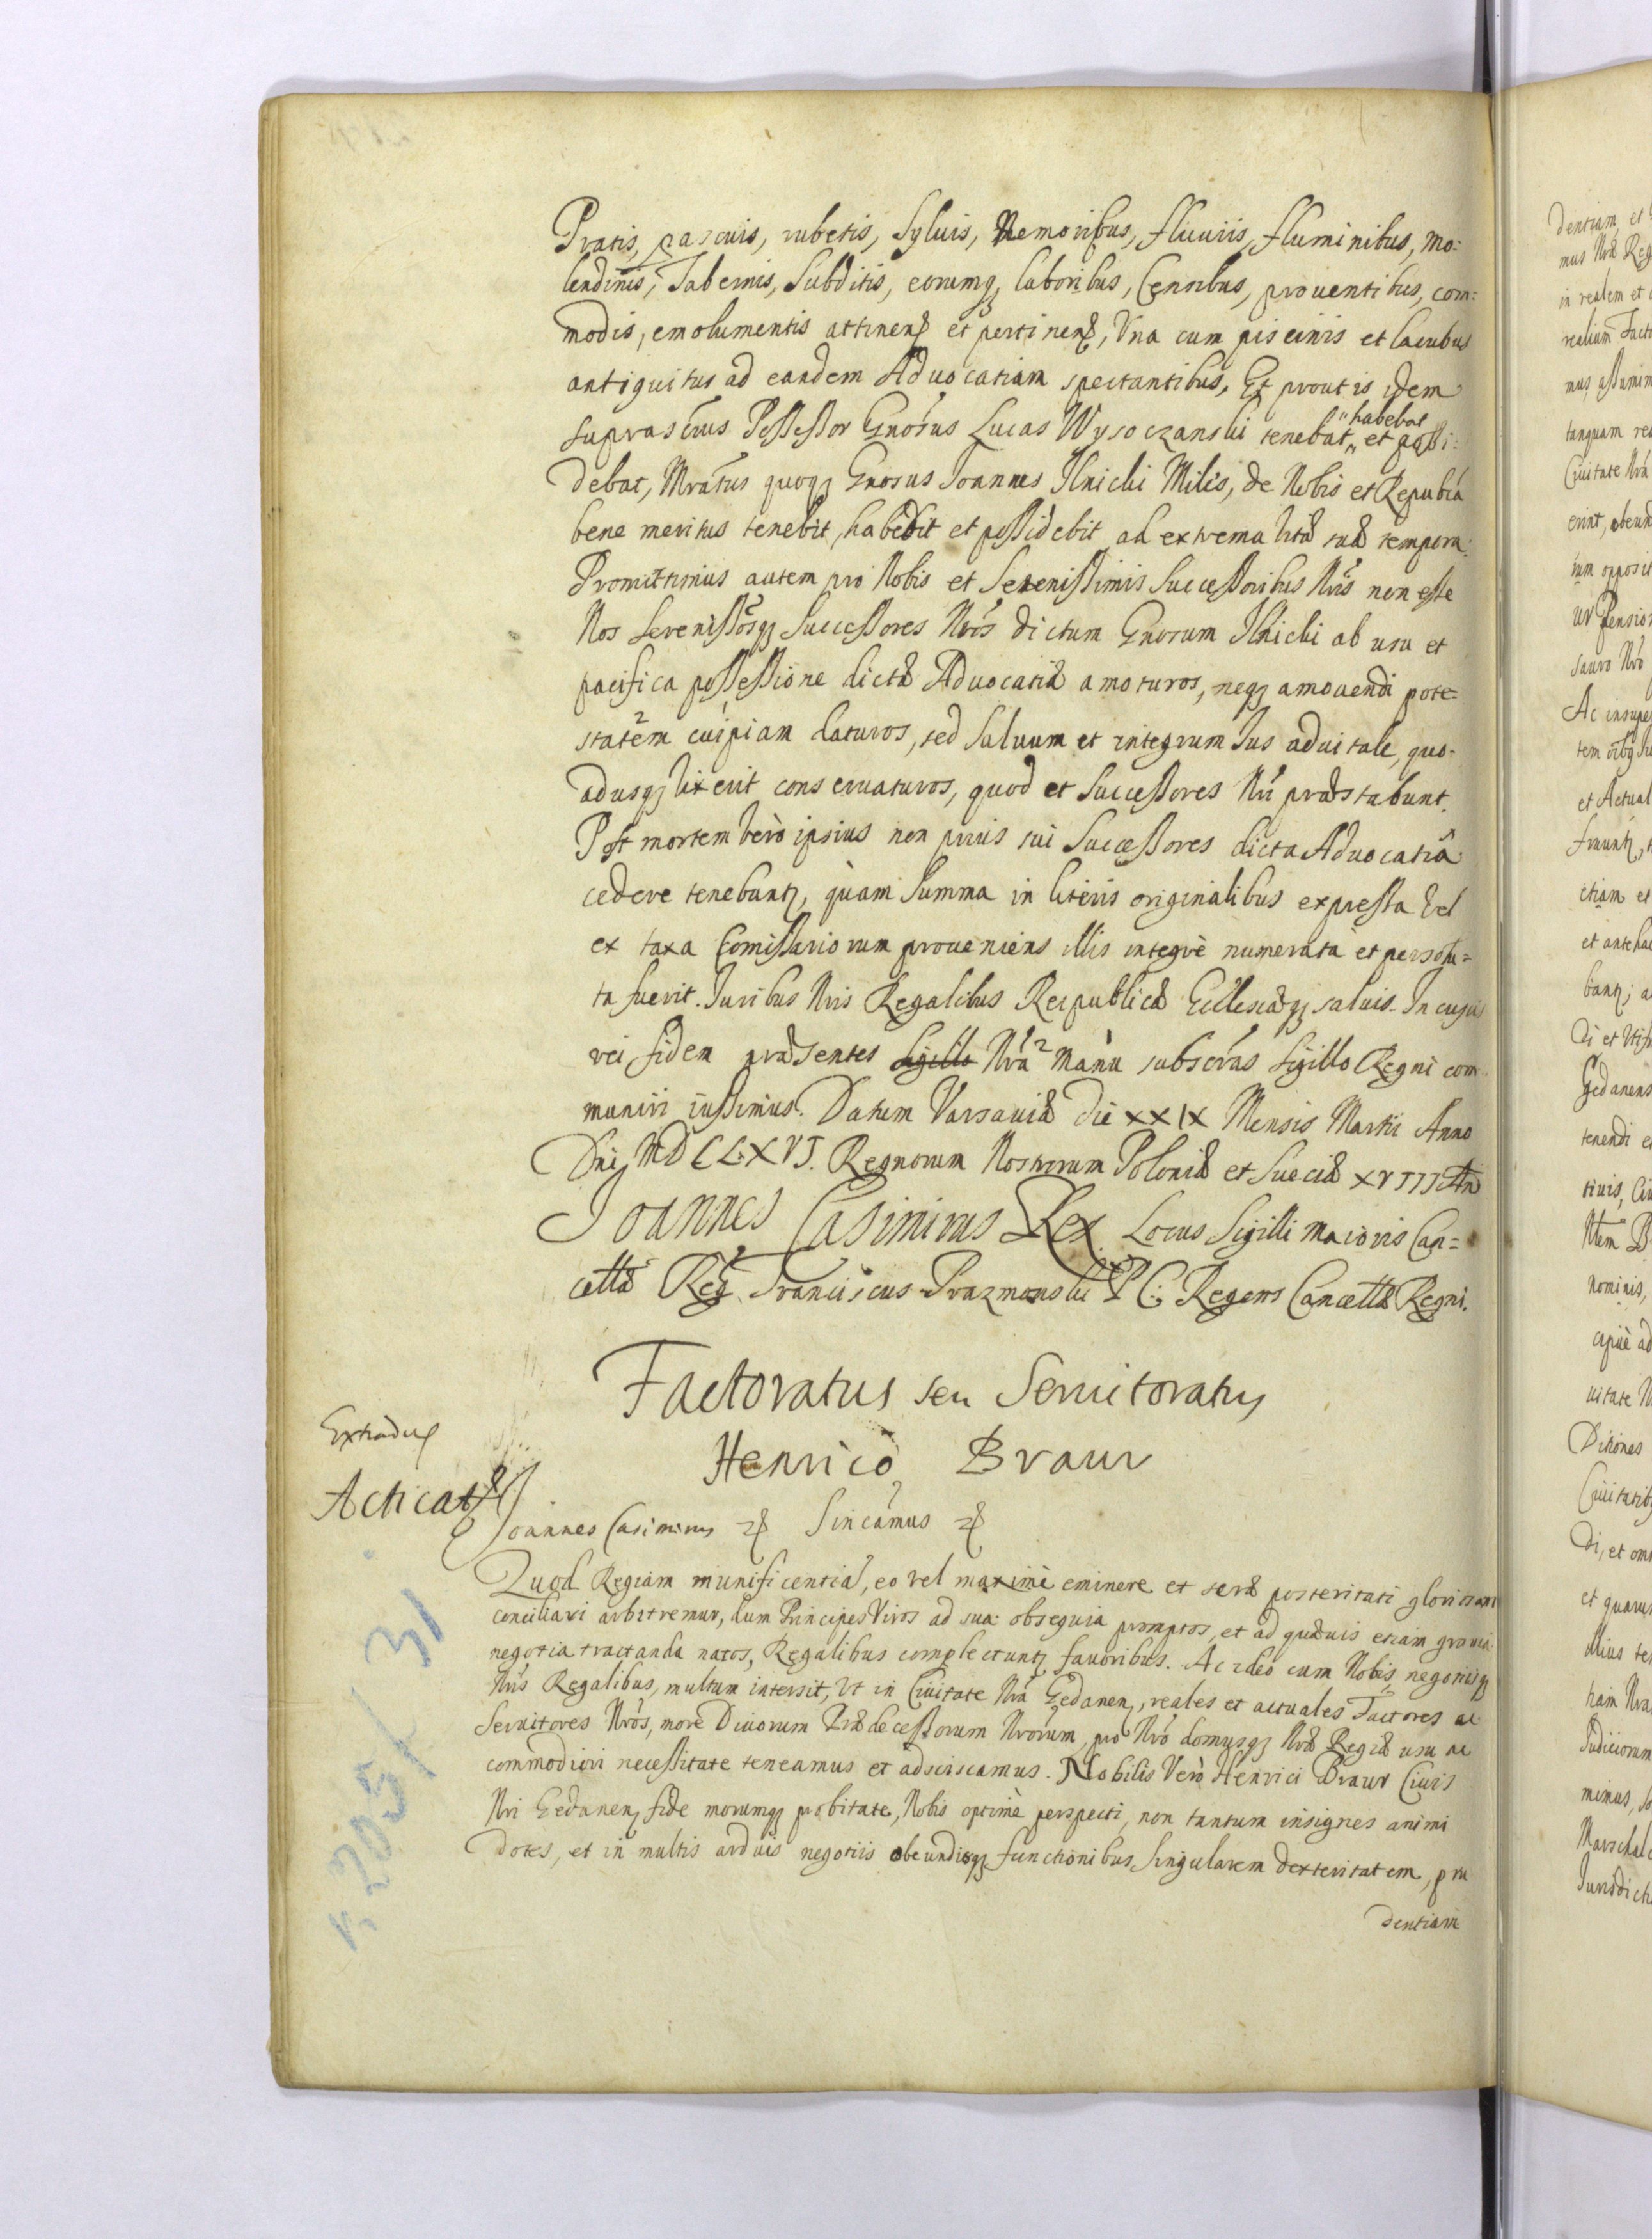 Pratis, pascuis, rubetis, Syluis, Nemoribus, fluuiis, fluminibus, mo:
lendinis, Tabernis, Subditis, eorumq; laboribus, Censibus, prouentibus, com:
modis, emolumentis attinen; et pertinen;, Vna cum piscinis et lacubus
antiquitus ad eandem Aduocatiam spectantibus, Et prout is idem
suprascrus Possessor Gnosus Lucas Wysoczanski tenebat „habebat„ et possi:
debat, Mratus quoq; Gnosus Joannes Ilnicki Miles, de Nobis et Republica
bene meritus tenebit, habebit et possidebit ad extrema vitæ suæ tempora.
Promittimus autem pro Nobis et Serenissimis Successoribus Nris non esse
Nos Serenissosq; Successores Nros dictum Gnosum Ilnicki ab usu et
pacifica possessione dictæ Aduocatiæ amoturos, neq; amouendi pote=
statem cuipiam daturos, sed Saluum et integrum Jus aduitale, quo-
adusq; vixerit conseruaturos, quod et Successores Nri præstabunt.
Post mortem verò ipsius non prius sui Successores dicta Aduocatiâ
cedere tenebuntr, quàm Summa in literis originalibus expressa vel
ex taxa Comissariorum proueniens illis integrè numerata et persolu=
ta fuerit. Juribus Nris Regalibus Reipublicæ Ecclesiæq; saluis. In cujus
rei fidem præsentes Sigillo Nra Manu subscras Sigillo Regni com
muniri iussimus. Datum Varsauiæ die XXIX Mensis Martii Anno
Dni MDCLXVI. Regnorum Nostrorum Poloniæ et Sueciæ XVIII An
Joannes Casimirus Rex. Locus Sigilli maioris Can=
cellæ Reg. Franciscus Prazmowski P C: Regens Cancellæ Regni.
Factoratus seu Seruitoratus
Henrico Braur
Extradus
Acticat
Joannes Casimirus Sincamus
Quod Regiam munificentiã, eo vel maximè eminere et seræ posteritati gloriosam
conciliari arbitremur, dum Principes Viros ad sua obsequia promptos, et ad quæuis etiam grauia
negotia tractanda natos, Regalibus complectuntr fauoribus. Ac ideò cum Nobis negotiisq;
Nris Regalibus, multum intersit, vt in Ciuitate Nra Gedanen;, reales et actuales Factores ac
Seruitores Nros, more Diuorum Prædecessorum Nrorum, pro Nro domusq; Nræ Regiæ usu ac
commodiori necessitate teneamus et adsciscamus. Nobilis Verò Henrici Braur Ciuis
Nri Gedanen; fide morumq; probitate, Nobis optimè perspecti, non tantum insignes animi
dotes, et in multis arduis negotiis obeundisq; functionibus singularem dexteritatem, pru
dentiam